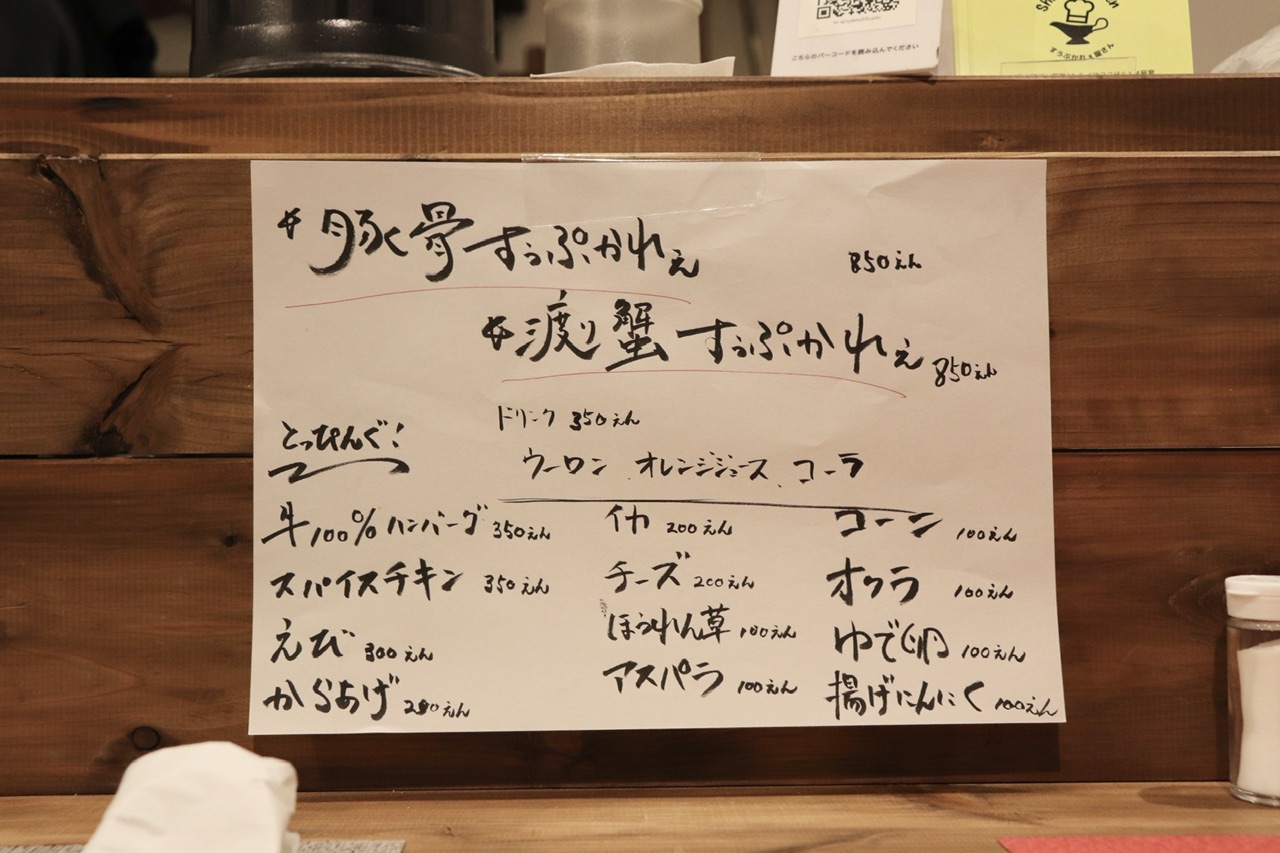 こちらのバーコードを読み込んでください
すうぷかれぇ屋さん
豚骨すぅぷかれぇ 850えん
渡り蟹すぅぷかれぇ 850えん
とっぴんぐ！
ドリンク 350えん
ウーロン、オレンジジュース、コーラ
牛100%ハンバーグ 350えん
スパイスチキン 350えん
えび 300えん
からあげ 250えん
イカ 200えん
チーズ 200えん
ほうれん草 100えん
アスパラ 100えん
コーン 100えん
オクラ 100えん
ゆで卵 100えん
揚げにんにく 100えん